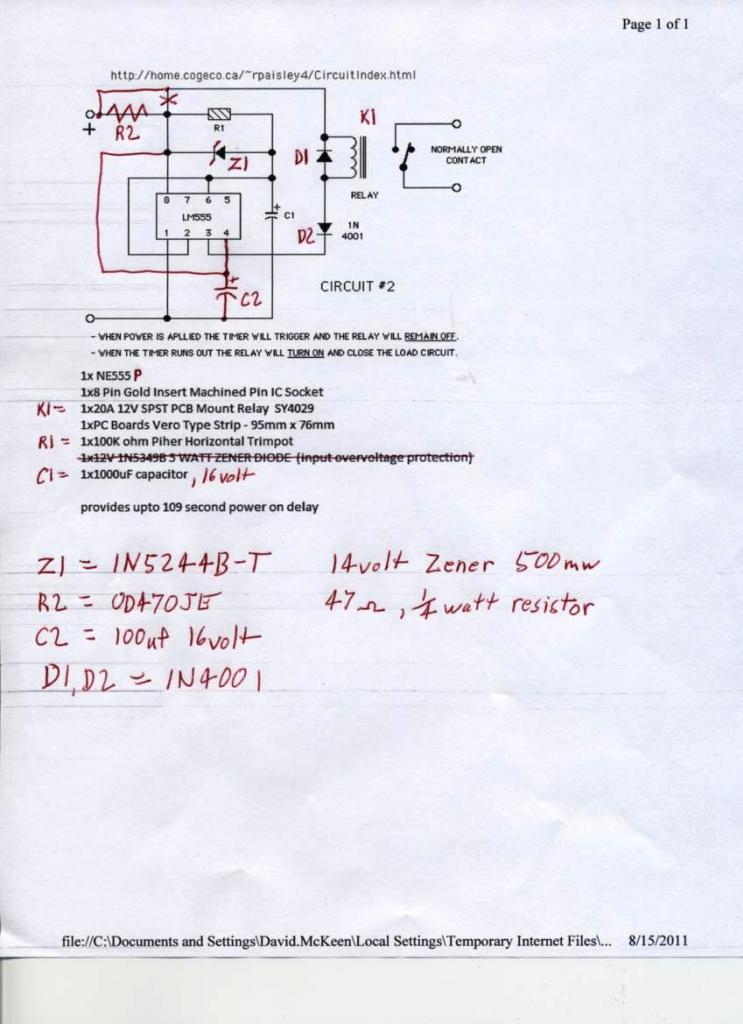 Page 1 of 1
http://home.cogeco.ca/~rpaisley4/CircuitIndex.html
+
R2
R1
Z1
K1
D1
RELAY
NORMALLY OPEN
CONTACT
8 7 6 5
LM555
1 2 3 4
+
C1
D2
1N
4001
+
C2
CIRCUIT #2
- WHEN POWER IS APLLIED THE TIMER WILL TRIGGER AND THE RELAY WILL REMAIN OFF.
- WHEN THE TIMER RUNS OUT THE RELAY WILL TURN ON AND CLOSE THE LOAD CIRCUIT.
1x NE555 P
1x8 Pin Gold Insert Machined Pin IC Socket
K1= 1x20A 12V SPST PCB Mount Relay SY4029
1xPC Boards Vero Type Strip - 95mm x 76mm
R1 = 1x100K ohm Piher Horizontal Trimpot
1x12V 1N5349B 5 WATT ZENER DIODE (input overvoltage protection)
C1= 1x1000uF capacitor, 16volt
provides upto 109 second power on delay
Z1 = 1N5244B-T 14volt Zener 500mw
R2 = OD470JE 47Ω, ¼ watt resistor
C2 = 100uf 16volt
D1, D2 = 1N4001
file://C:\Documents and Settings\David.McKeen\Local Settings\Temporary Internet Files\... 8/15/2011